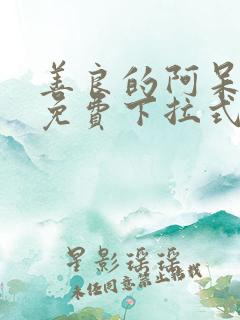 善良的阿呆
免費下拉式
星影瑶瑶
未经同意禁止转载